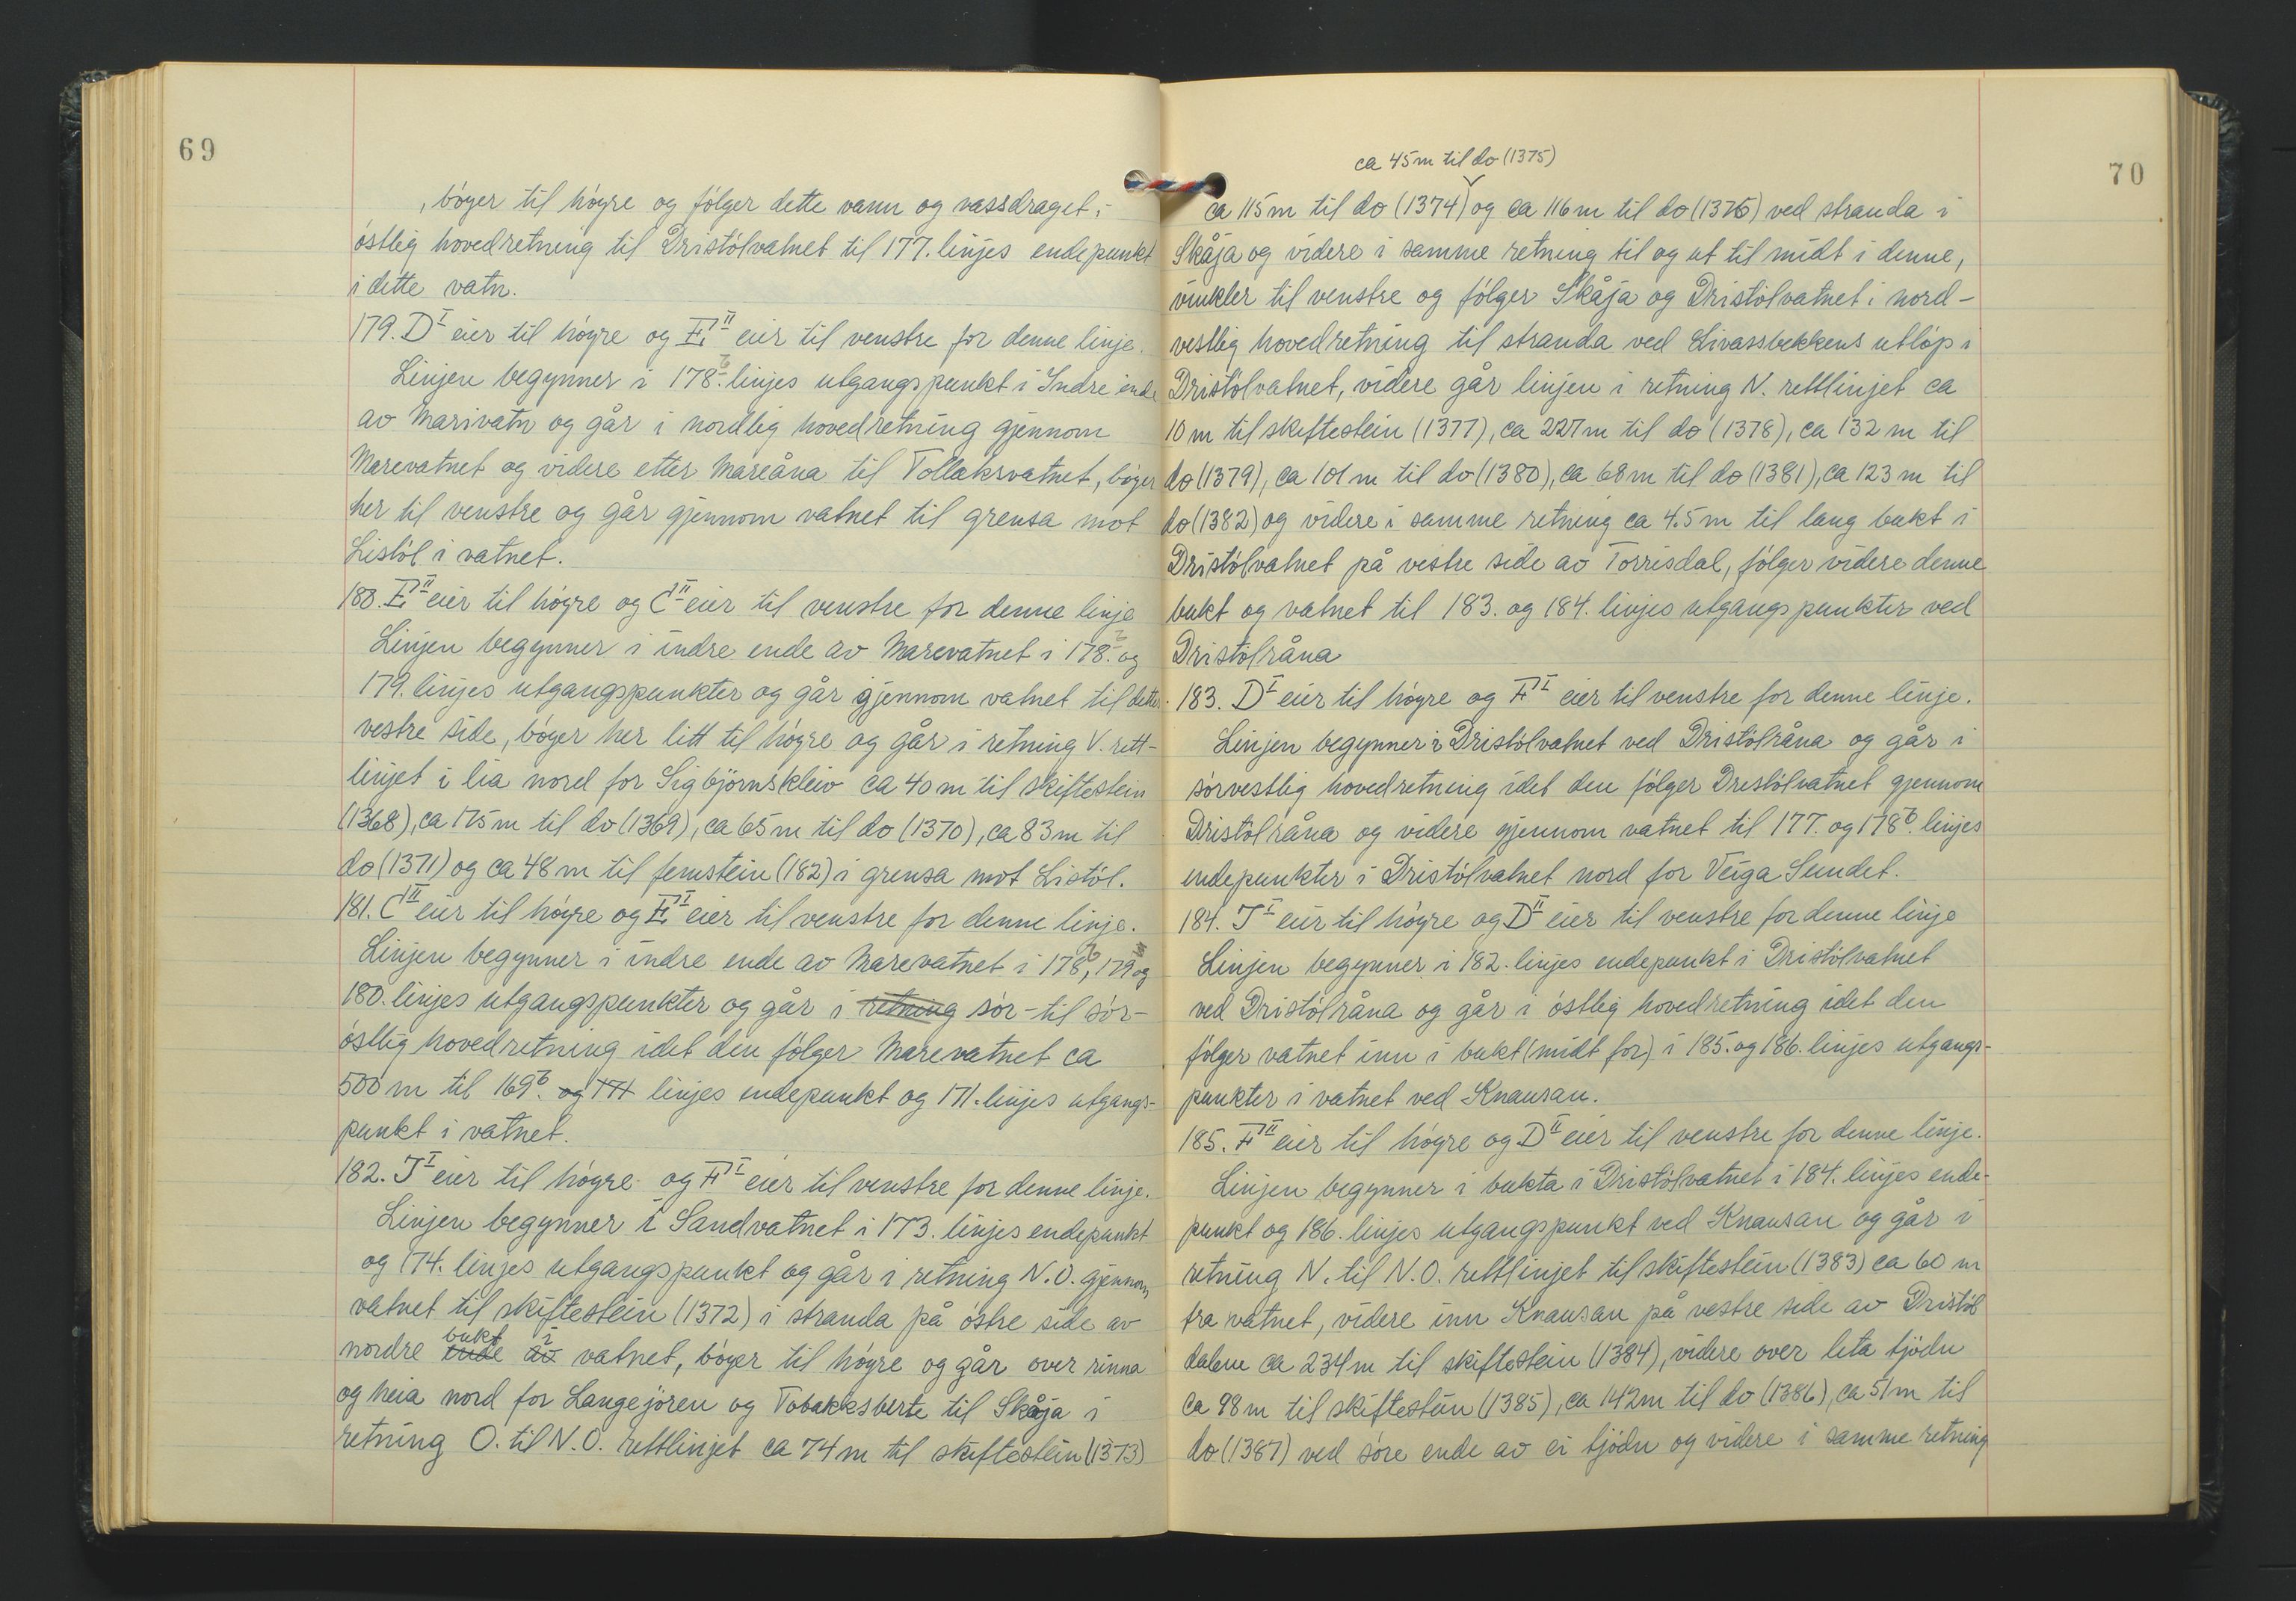 69
, bóyer til hógre og fólger dette vann og vassdraget i
óstlig hovedretning til Dristólvatnet til 177. linjes endepunkt
i dette vatn.
179. D I eier til hógre og E II eier til venstre for denne linje.
Linjen begynner i 178 b. linjes utgangspunkt i Indre ende
av Marivatn og går i nordlig hovedretning gjennom
Marevatnet og videre etter Mareåna til Tollaksvatnet, bóyer
her til venstre og går gjennom vatnet til grensa mot
Listól i vatnet.
180. E II eier til hógre og C II eier til venstre for denne linje
Linjen begynner i indre ende av Marevatnet i 178 b. og
179. linjes utgangspunkter og går gjennom vatnet til dets
vestre side, bóyer her litt til hógre og går i retning V. rett-
linjet i lia nord for Sigbjörnskleiv ca 40 m til skiftestein
(1368), ca 175 m til do (1369), ca 65 m til do (1370), ca 83 m til
do (1371) og ca 48 m til femstein (182) i grensa mot Listól.
181. C II eier til hógre og E I eier til venstre for denne linje.
Linjen begynner i indre ende av Marevatnet i 178 b, 179 og
180. linjes utgangspunkter og går i retning sór-til sór-
óstlig hovedretning idet den fólger Marevatnet ca
500 m til 169 b. og 171 linjes endepunkt og 171. linjes utgangs-
punkt i vatnet.
182. J I eier til hógre og F I eier til venstre for denne linje.
Linjen begynner i Sandvatnet i 173. linjes endepunkt
og 174. linjes utgangspunkt og går i retning N.O. gjennom
vatnet til skiftestein (1372) i stranda på óstre side av
bukt i
nordre ende av vatnet, bóyer til hógre og går over rinna
og heia nord for Langejóren og Tobakksberte til Skåja i
retning O. til N.O. rettlinjet ca 74 m til skiftestein (1373)
70
ca 45 m til do (1375)
ca 115 m til do (1374) og ca 116 m til do (1376) ved stranda i
Skåja og videre i samme retning til og ut til midt i denne,
vinkler til venstre og fólger Skåja og Dristólvatnet i nord-
vestlig hovedretning til stranda ved Livassbekkens utlóp i
Dristólvatnet, videre går linjen i retning N. rettlinjet ca
10 m til skiftestein (1377), ca 227 m til do (1378), ca 132 m til
do (1379), ca 101 m til do (1380), ca 68 m til do (1381), ca 123 m til
do (1382) og videre i samme retning ca 4.5 m til lang bukt i
Dristólvatnet på vestre side av Torrisdal, fólger videre denne
bukt og vatnet til 183. og 184. linjes utgangspunkter ved
Dristólråna
183. D I eier til hógre og F I eier til venstre for denne linje.
Linjen begynner i Dristólvatnet ved Dristólråna og går i
sórvestlig hovedretning idet den fólger Drestólvatnet gjennom
Dristólråna og videre gjennom vatnet til 177. og 178 b. linjes
endepunkter i Dristólvatnet nord for Veiga Sundet.
184. J I eier til hógre og D II eier til venstre for denne linje
Linjen begynner i 182. linjes endepunkt i Dristólvatnet
ved Dristólråna og går i óstlig hovedretning idet den
fólger vatnet inn i bukt (midt for) i 185. og 186. linjes utgangs-
punkter i vatnet ved Knausan.
185. F II eier til hógre og D II eier til venstre for denne linje.
Linjen begynner i bukta i Dristólvatnet i 184. linjes ende-
punkt og 186. linjes utgangspunkt ved Knausan og går i
retning N. til N.O. rettlinjet til skiftestein (1383) ca 60 m
fra vatnet, videre inn Knausan på vestre side av Dristól
dalene ca 234 m til skiftestein (1384), videre over leta tjódn
ca 98 m til skiftestein (1385), ca 142 m til do (1386), ca 51 m til
do (1387) ved sóre ende av ei tjódn og videre i samme retning